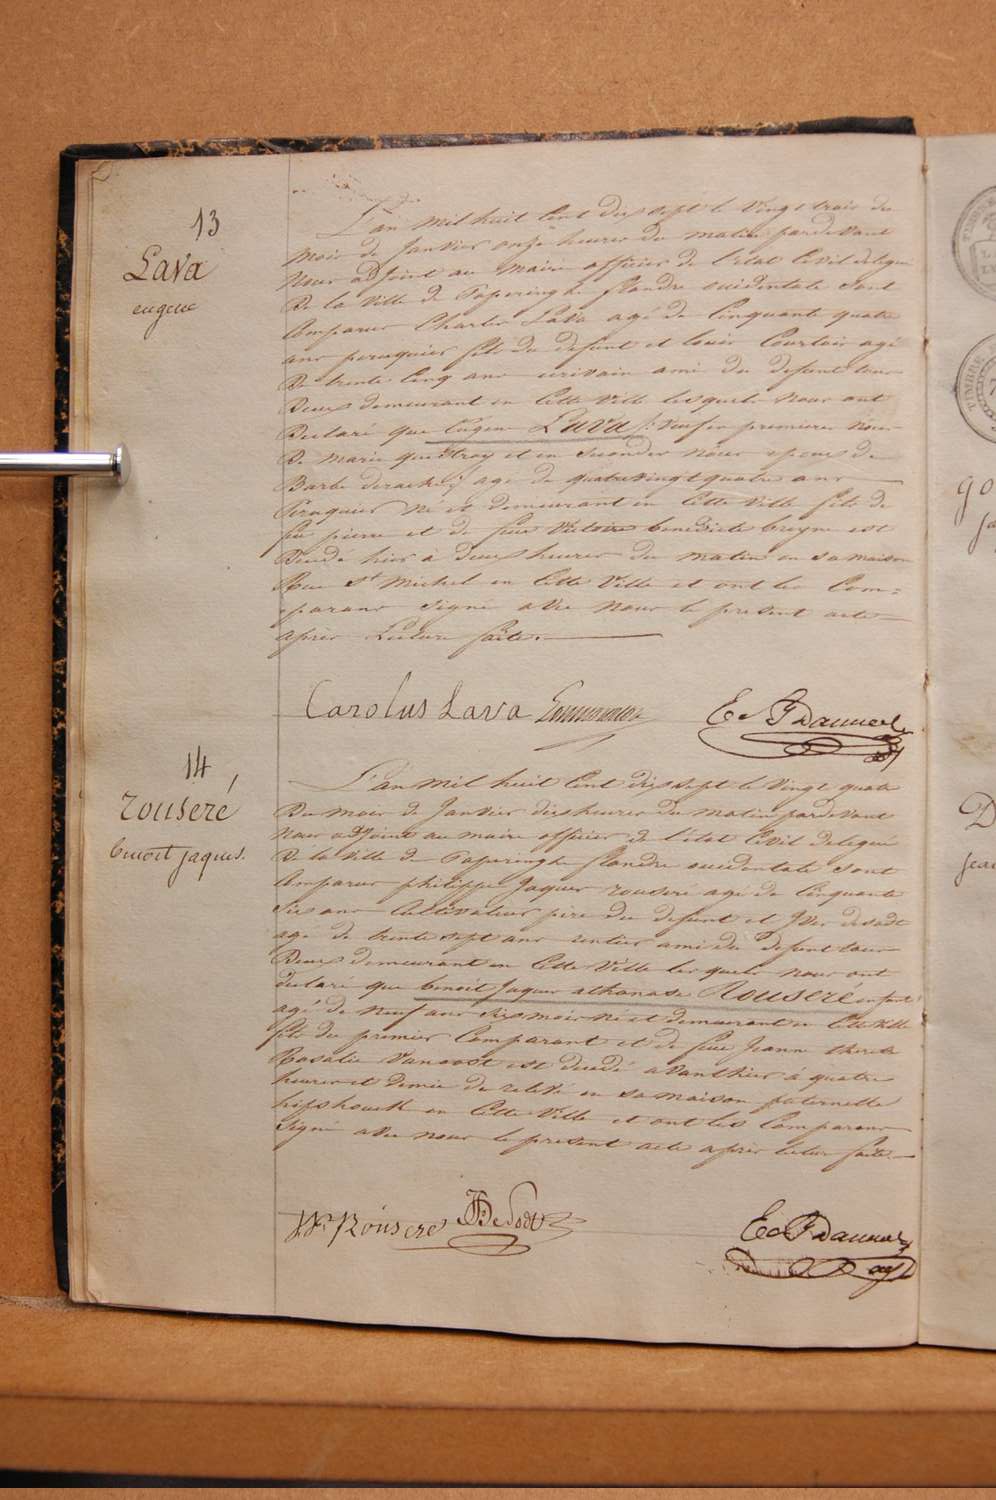 13
Lava
eugene
L'an mil huit Cent dix sept le Vingt trois du
mois de Janvier onze heures du matin pardevant
Nous adjoint au maire officier de l'état Civil delegué
De la Ville de Poperinghe flandre occidentale sont
Comparus Charles Lava agé de Cinquante quatre
ans peruquier fils du defunt et louis Courtois agé
De trente Cinq ans ecrivain ami du defunt tous
Deux demeurant en Cette Ville lesquels Nous ont
Declaré que Eugene Lava veuf en premieres Nôces
De marie et en secondes Nôces epoux de
Barbe agé de quatrevingt quatre ans
Peruquier Né et demeurant en Cette Ville fils de
feu pierre et de feue Victoire benedicte Creyne est
Decedé hier à deux heures du matin en sa maison
Rue St Michel en Cette Ville et ont les Com=
parans signé avec Nous le present acte
après Lecture faite.
Carolus Lava
14
rouseré
benoit jaques.
L'an mil huit Cent dix sept le Vingt quatre
Du mois de Janvier dix heures du matin pardevant
Nous adjoint au maire officier de l'état Civil delegué
De la Ville de Poperinghe flandre occidentale sont
Comparus philippe Jaques rouseré agé de Cinquante
Six ans Cultivateur pere du defunt et Yves desodt
agé de trente sept ans rentier ami du defunt tous
Deux demeurant en Cette Ville lesquels nous ont
declaré que benoit Jaques athanase Rouseré enfant
agé de Neuf ans Six mois Né et demeurant en Cette Ville
fils du premier Comparant et de feue Jeanne therese
Rosalie est decedé avanthier à quatre
heures et demie de relevé en sa maison paternelle
en Cette Ville et ont les Comparans
Signé avec nous le present acte après lecture faite.
Rousere
De Sodt
go
D
jean
TIMBRE